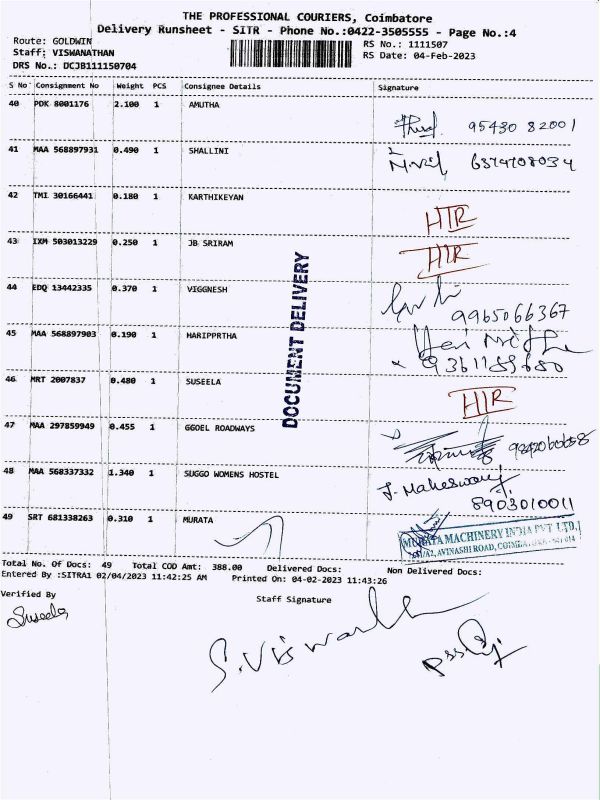 THE PROFESSIONAL COURIERS, Coimbatore
Delivery Runsheet - SITR - Phone No.:0422-3505555 - Page No.:4
Route: GOLDWIN
Staff: VISWANATHAN
DRS No.: DCJB111150704
RS No.: 1111507
RS Date: 04-Feb-2023
S No Consignment No Weight PCS Consignee Details Signature
40 PDK 8001176 2.100 1 AMUTHA
95430 82001
41 MAA 568897931 0.490 1 SHALLINI
6374708034
42 TMI 30166441 0.180 1 KARTHIKEYAN
HIR
43 IXM 503013229 0.250 1 JB SRIRAM
HIR
44 EDQ 13442335 0.370 1 VIGGNESH
9965066367
45 MAA 568897903 0.190 1 HARIPPRTHA
46 MRT 2007837 0.480 1 SUSEELA
HIR
47 MAA 297859949 0.455 1 GGOEL ROADWAYS
48 MAA 568337332 1.340 1 SUGGO WOMENS HOSTEL
J. Maheswary
8903010011
49 SRT 681338263 0.310 1 MURATA
MURATA MACHINERY INDIA PVT LTD.,
AVINASHI ROAD,
DOCUMENT DELIVERY
Total No. Of Docs: 49 Total COD Amt: 388.00 Delivered Docs: Non Delivered Docs:
Entered By :SITRA1 02/04/2023 11:42:25 AM Printed On: 04-02-2023 11:43:26
Verified By
Staff Signature
Suseela
S. Viswanath